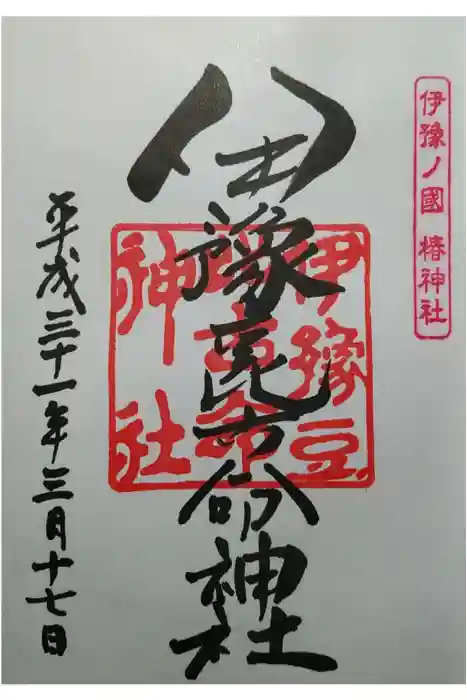 伊豫ノ國 椿神社
伊豫豆比古命神社
伊豫豆
比古命
神社
平成三十一年三月十七日